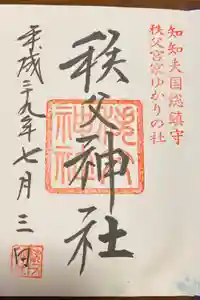 知知夫国総鎮守
秩父宮家ゆかりの社
秩父神社
平成二十九年七月三日